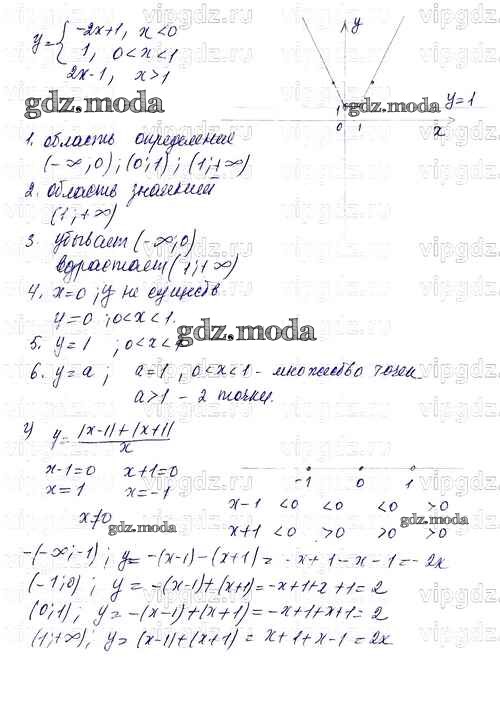 y = { -2x+1, x<0
1, 0<x<1
2x-1, x>1
gdz.moda
y
y=1
1
0 1 x
1. область определения
(-∞,0); (0;1); (1;+∞)
2. область значений
(1;+∞)
3. убывает (-∞;0)
возрастает (1;+∞)
4. x=0; y не существ.
y=0; 0<x<1.
gdz.moda
5. y=1; 0<x<1
6. y=a; a=1, 0<x<1 - множество точек
a>1 - 2 точки.
y = |x-1|+|x+1| / x
x-1=0 x+1=0
x=1 x=-1
x≠0
gdz.moda
-1 0 1
x-1 <0 <0 <0 >0
gdz.moda
x+1 <0 >0 >0 >0
-(-∞;-1); y= -(x-1)-(x+1)= -x+1-x-1=-2x
(-1;0); y= -(x-1)+(x+1)=-x+1+x+1=2
(0;1); y= -(x-1)+(x+1)=-x+1+x+1=2
(1;+∞); y= (x-1)+(x+1)= x+1+x-1=2x
vipgdz.ru